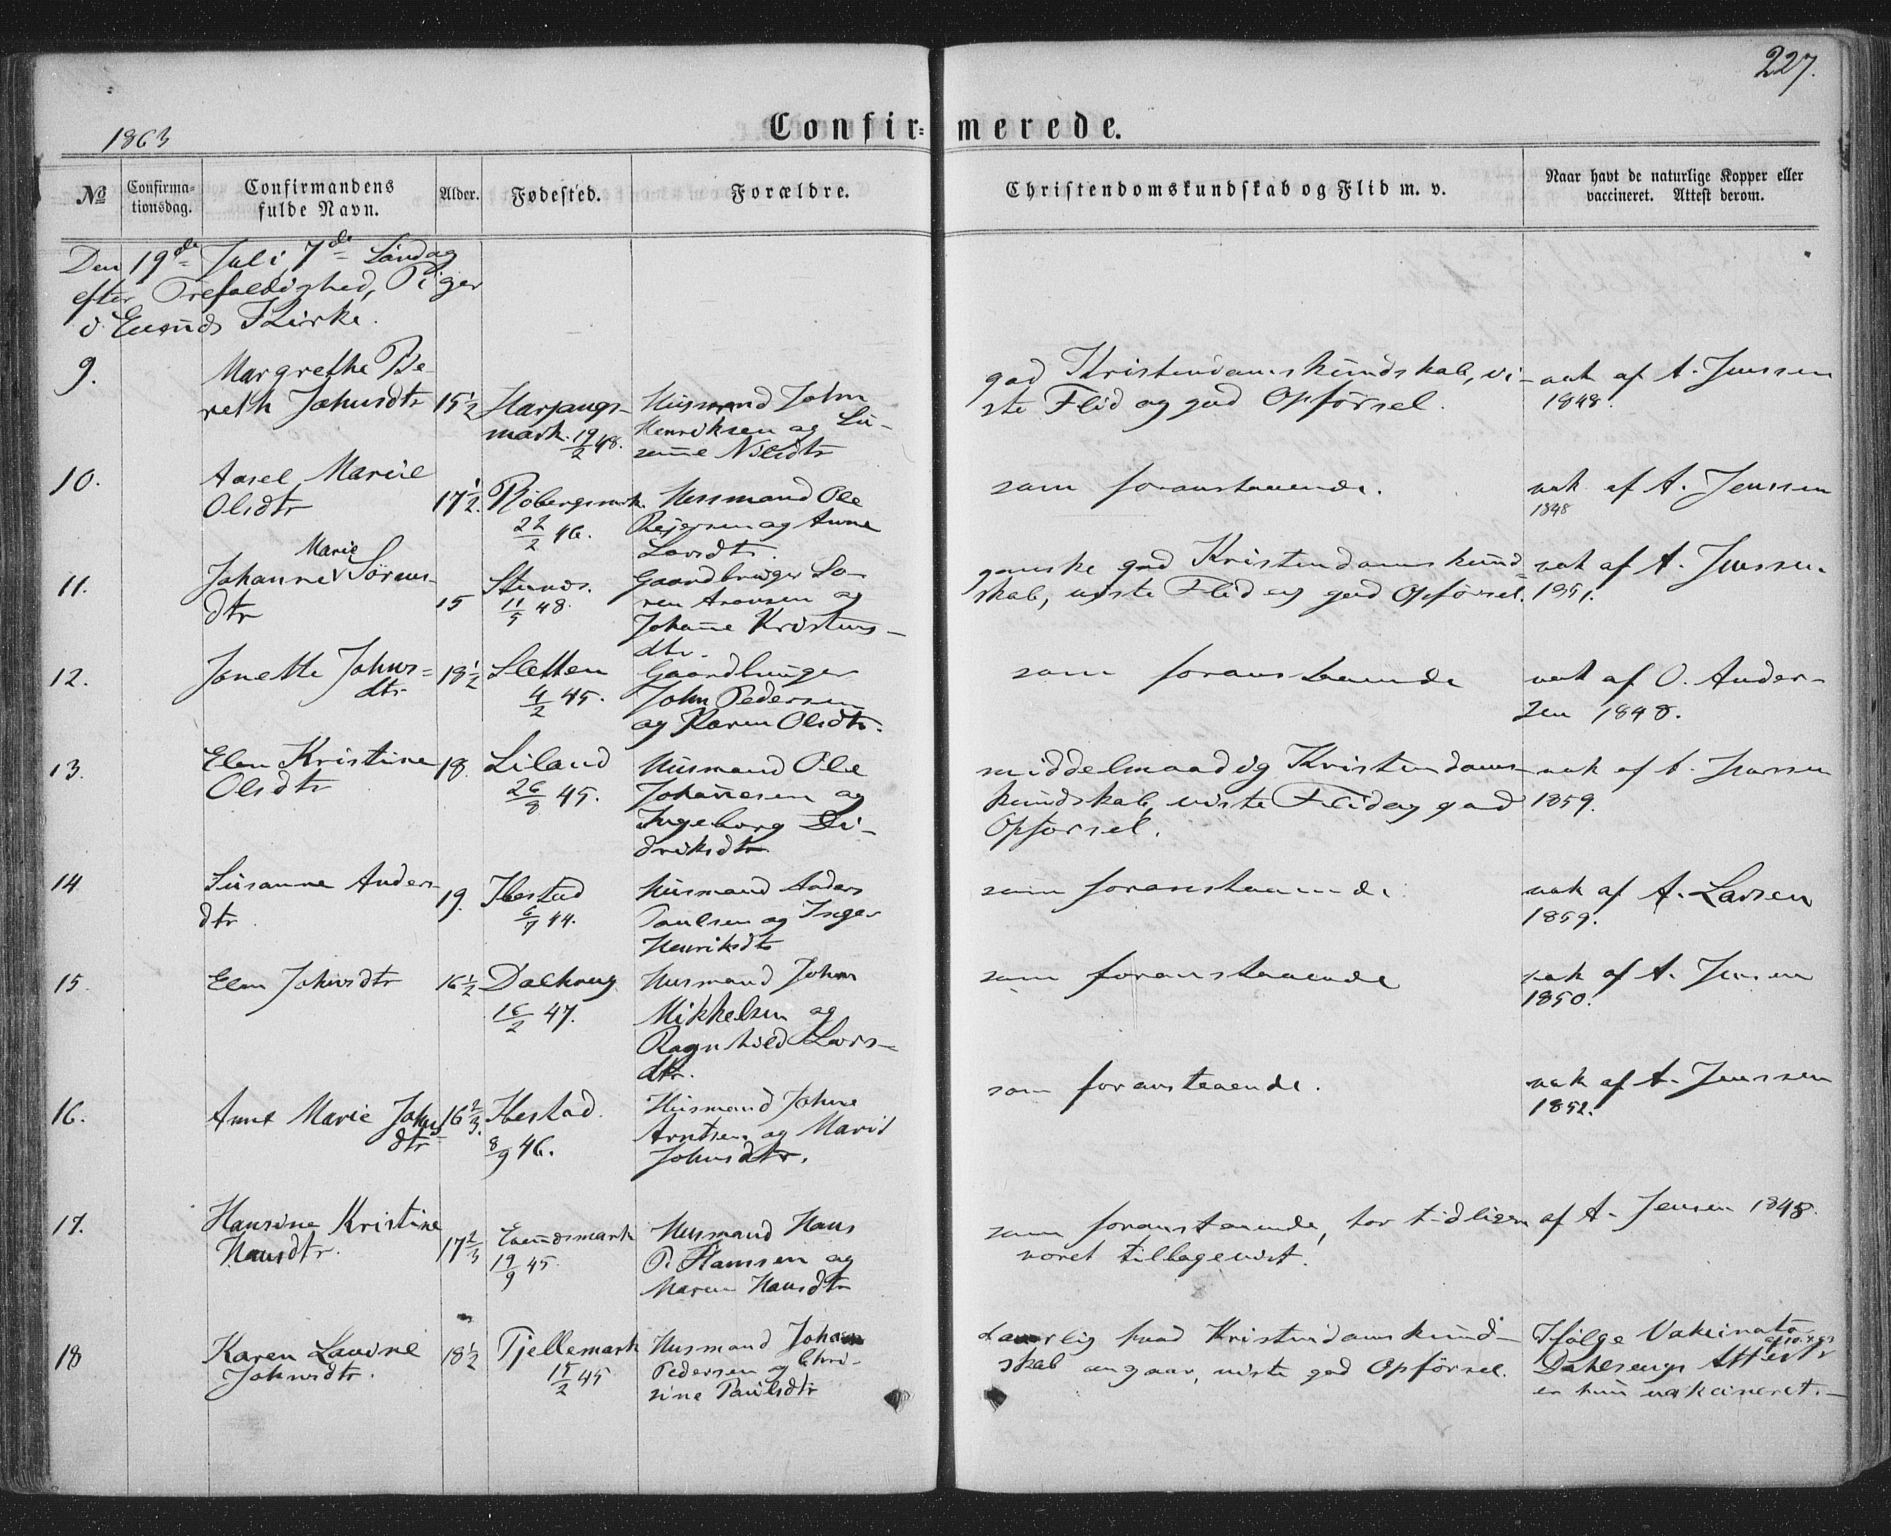 227.
1863
Confir= merede.
No
Confirma-
tionsdag.
Confirmandens
fulde Navn.
Alder.
Fødested.
Forældre.
Christendomskundskab og Flid m. v.
Naar havt de naturlige Kopper eller
vaccineret. Attest derom.
Den 19de Juli, 7de Søndag
efter Trefoldighed, Piger
i Evends Kirke.
9.
Margrethe Be-
reth Johnsdtr
15 1/2
Harjangs-
mark. 19/2 48.
Husmand John
Henriksen og Su-
sanne Nilsdtr
god Kristendomskundskab, vi-
ste Flid og god Opførsel.
vak af A. Jenssen
1848.
10.
Aasel Marie
Olsdtr
17 1/2.
Røbergsmark
22/2 46.
Husmand Ole
Rejersen og Anne
Larsdtr.
som foranstaaende.
vak af A. Jenssen
1848
11.
Marie
Johanne Sørens-
dtr
15
Stunes.
11/5 48.
Gaardbruger Sø-
ren Aronsen og
Johanne Kristens-
dtr.
ganske god Kristendomskund-
skab, viste Flid og god Opførsel.
vak af A. Jenssen.
1851.
12.
Jonette Johns=
dtr
18 1/2
Sletten
4/2 45.
Gaardbruger
John Pedersen
og Karen Olsdtr.
som foranstaaende
vak af O. Ander-
sen 1848.
13.
Elen Kristine
Olsdtr
18.
Liland
26/8 45.
Husmand Ole
Johannesen og
Ingeborg Di-
driksdtr
middelmaadig Kristendoms-
kundskab, viste Flid og god
Opførsel.
vak af A. Jenssen
1859.
14
Susanne Anders-
dtr.
19.
Ibestad
6/7 44.
Husmand Anders
Paulsen og Inger
Henriksdtr
som foranstaaende
vak af A. Larsen
1859.
15.
Elen Johnsdtr
16 1/2
Dalhoug
16/2 47.
Husmand John
Mikkelsen og
Ragnhild Lars-
dtr.
som foranstaaende
vak af A. Jensen
1850.
16.
Anne Marie Johns
dtr
16 2/3.
Ibestad.
8/9 46.
Husmand Johne
Arntsen og Marit
Johnsdtr.
som foranstaaende.
vak af A. Jenssen
1852.
17.
Hansine Kristine
Hansdtr.
17 2/3
Evendsmark
19/9 45.
Husmand Hans
P. Hansen og
Maren Hansdtr
som foranstaaende, har tidligere
været tilbagevist.
af A. Jensen 1848.
18
Karen Lavine
Johnsdtr.
18 1/2
Tjellemark
15/2 45
Husmand Johan
Pedersen og Chri-
sine Paulsdtr
daarlig hvad Kristendomskund-
skab angaar, viste god Opførsel.
Ifølge Vakcinatør
Dahlsengs Attest
er hun vakcineret.